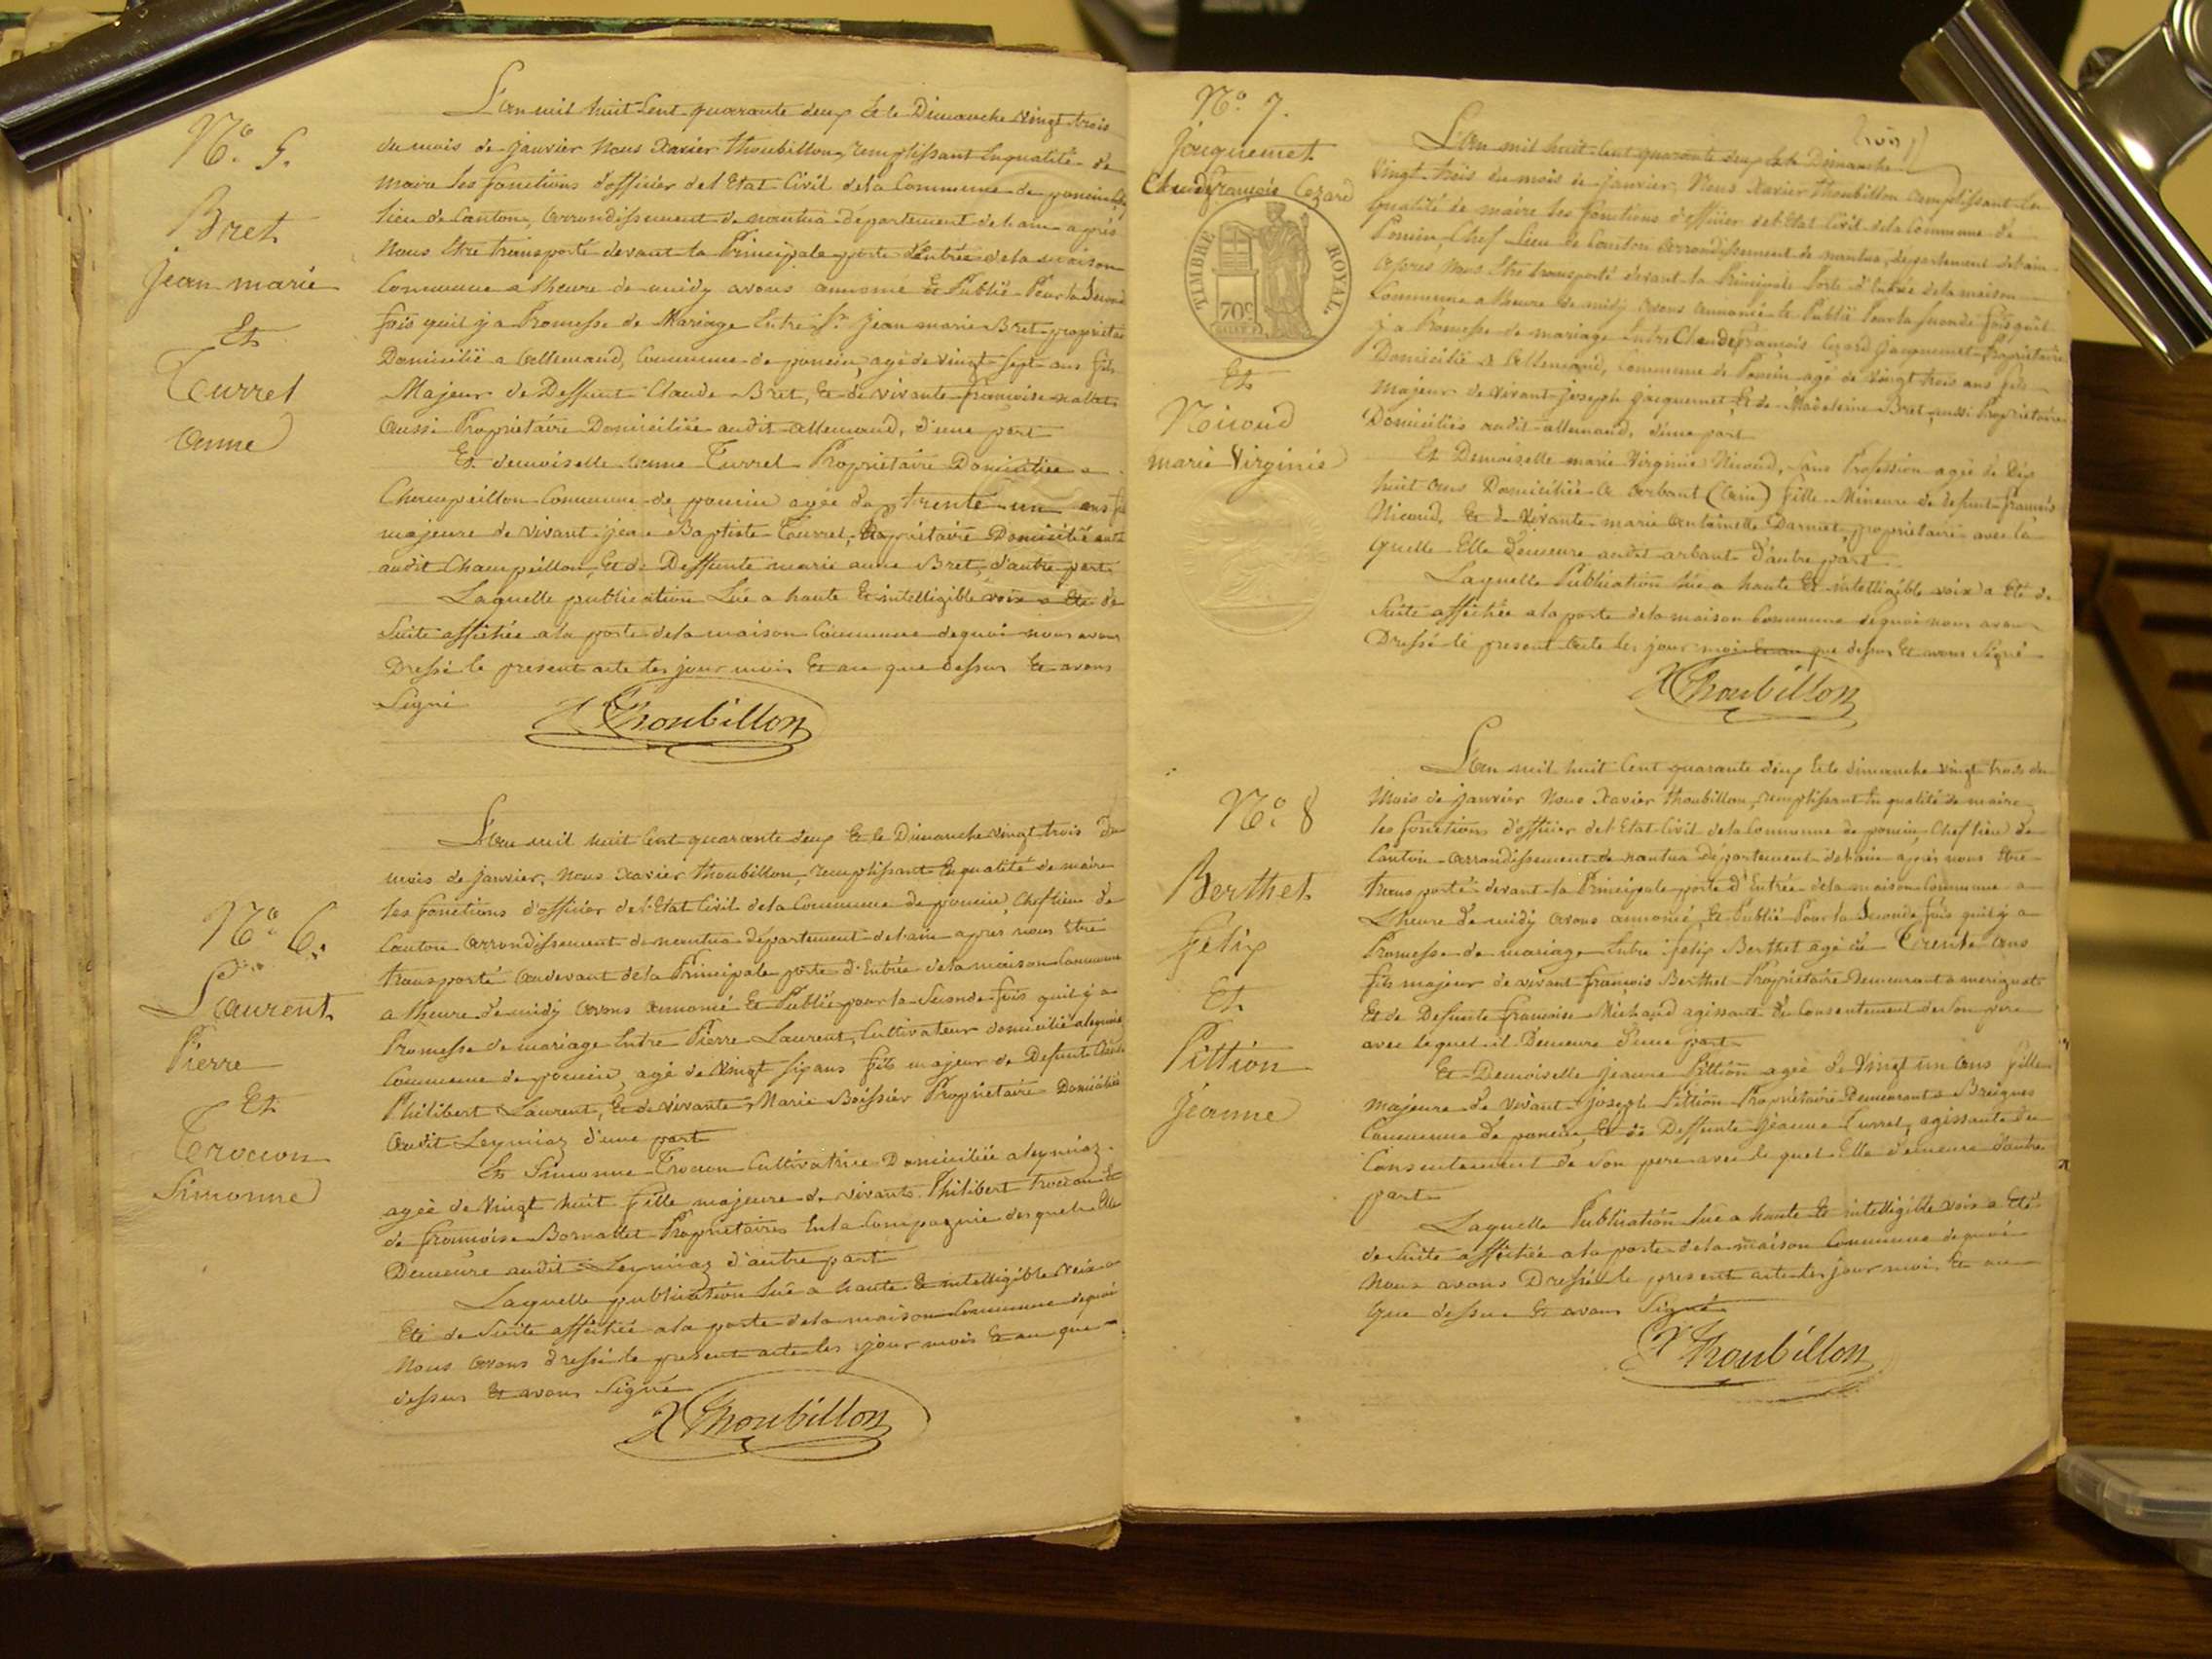 N.º 5.
Bret
Jean marie
Et
Turrel
anne
L'an mil huit Cent quarante deux Et le Dimanche vingt trois
du mois de janvier Nous Xavier Thoubillon, remplissant En qualité de
maire les fonctions d'officier de l'Etat Civil de la Commune de poncin Chef
lieu de Canton, arrondissement de nantua département de l'ain après
Nous Etre transporté devant la Principale porte d'entrée de la maison
Commune a l'heure de midy avons annoncé Et Publié Pour la Seconde
fois quil y a Promesse de Mariage Entre Sr. Jean marie Bret propriétaire
Domicilié a allemand, Commune de poncin, agé de vingt sept ans fils
Majeur de Deffunt Claude Bret, Et de vivante françoise
aussi Propriétaire Domiciliée audit allemand, d'une part
Et demoiselle anne Turrel Propriétaire Domiciliée a
Champeillon Commune de poncin agée de trente un ans fille
majeure de vivant jean Baptiste Tourrel, Propriétaire Domicilié
audit Champeillon, Et de Deffunte marie anne Bret, d'autre part
Laquelle publication Lûe a haute Et intelligible voix a Eté de
Suite affichée a la porte de la maison Commune de quoi nous avons
Dressé le present acte les jour mois Et an que dessus Et avons
Signé
X Thoubillon
N.º 6.
Laurent
Pierre
Et
Trocon
Simonne
L'an mil huit Cent quarante deux Et le Dimanche vingt trois du
mois de janvier, Nous Xavier Thoubillon, remplissant En qualité de maire
les fonctions d'officier de l'Etat Civil de la Commune de poncin, Chef lieu de
Canton arrondissement de nantua département de l'ain après nous Etre
transporté audevant de la Principale porte d'Entrée de la maison Commune
a l'heure de midy avons annoncé Et Publié pour la Seconde fois quil y a
Promesse de mariage Entre Pierre Laurent, Cultivateur domicilié a leymiaz
Commune de poncin, agé de vingt six ans fils majeur de Defunt
Philibert Laurent, Et de vivante Marie Boissier Propriétaire Domiciliée
audit Leymiaz d'une part
Et Simonne Trocon Cultivatrice Domiciliée a leymiaz
agée de vingt huit fille majeure de vivants Philibert trocon Et
de françoise Propriétaires En la Compagnie desquels Elle
Demeure audit Leymiaz d'autre part
Laquelle publication lûe a haute Et intelligible voix a
Eté de Suite affichée a la porte de la maison Commune de quoi
Nous avons dressé le present acte les jour mois Et an que
dessus Et avons Signé
X Thoubillon
N.º 7.
Jacquemet
Claude françois Cezard
TIMBRE ROYAL.
70 c
Et
Nicoud
marie Virginie
L'an mil huit Cent quarante deux Et le Dimanche
Vingt trois du mois de janvier, Nous Xavier Thoubillon remplissant En
qualité de maire les fonctions d'officier de l'Etat Civil de la Commune de
Poncin, Chef Lieu de Canton arrondissement de nantua, département de l'ain
après Nous Etre transporté devant la Principale Porte d'Entrée de la maison
Commune a l'heure de midy avons annoncé Et Publié Pour la seconde fois quil
y a Promesse de mariage Entre Claude françois Cezard Jacquemet, Propriétaire
Domicilié a allemand, Commune de Poncin agé de vingt trois ans fils
majeur de vivant joseph jacquemet Et de Madeleine Bret aussi Propriétaires
Domiciliés audit allemand, d'une part
Et Demoiselle marie Virginie Nicoud, Sans Profession agée de Dix
huit ans Domiciliée a arbant (ain) fille Mineure de defunt françois
Nicoud, Et de Vivante marie antoinette propriétaire avec la
quelle Elle demeure audit arbant d'autre part
Laquelle Publication lûe a haute Et intelligible voix a Eté de
Suite affichée a la porte de la maison Commune de quoi nous avons
Dressé le present acte les jour mois Et an que dessus Et avons Signé
X Thoubillon
N.º 8
Berthet
felix
Et
Pittion
Jeanne
L'an mil huit Cent quarante deux Et le dimanche vingt trois du
Mois de janvier Nous Xavier Thoubillon, remplissant En qualité de maire
les fonctions d'officier de l'Etat Civil de la Commune de poncin, Chef lieu de
Canton arrondissement de nantua Département de l'ain après nous Etre
transporté devant la Principale porte d'Entrée de la maison Commune a
L'heure de midy avons annoncé Et Publié Pour la Seconde fois quil y a
Promesse de mariage Entre felix Berthet agé de Trente ans
fils majeur de vivant françois Berthet Propriétaire Demeurant a merignat
Et de Defunte françoise Michaud agissant du Consentement de Son pere
avec lequel il Demeure d'une part
Et Demoiselle jeanne Pittion agée de vingt un ans fille
majeure de vivant joseph Pittion Propriétaire Demeurant a Breignes
Commune de poncin, Et de Deffunte Jeanne Turrel, agissante du
Consentement de Son pere avec le quel Elle demeure d'autre
part
Laquelle Publication lûe a haute Et intelligible voix a Eté
de Suite affichée a la porte de la maison Commune de quoi
Nous avons Dressé le present acte les jour mois Et an
que dessus Et avons Signé
X Thoubillon